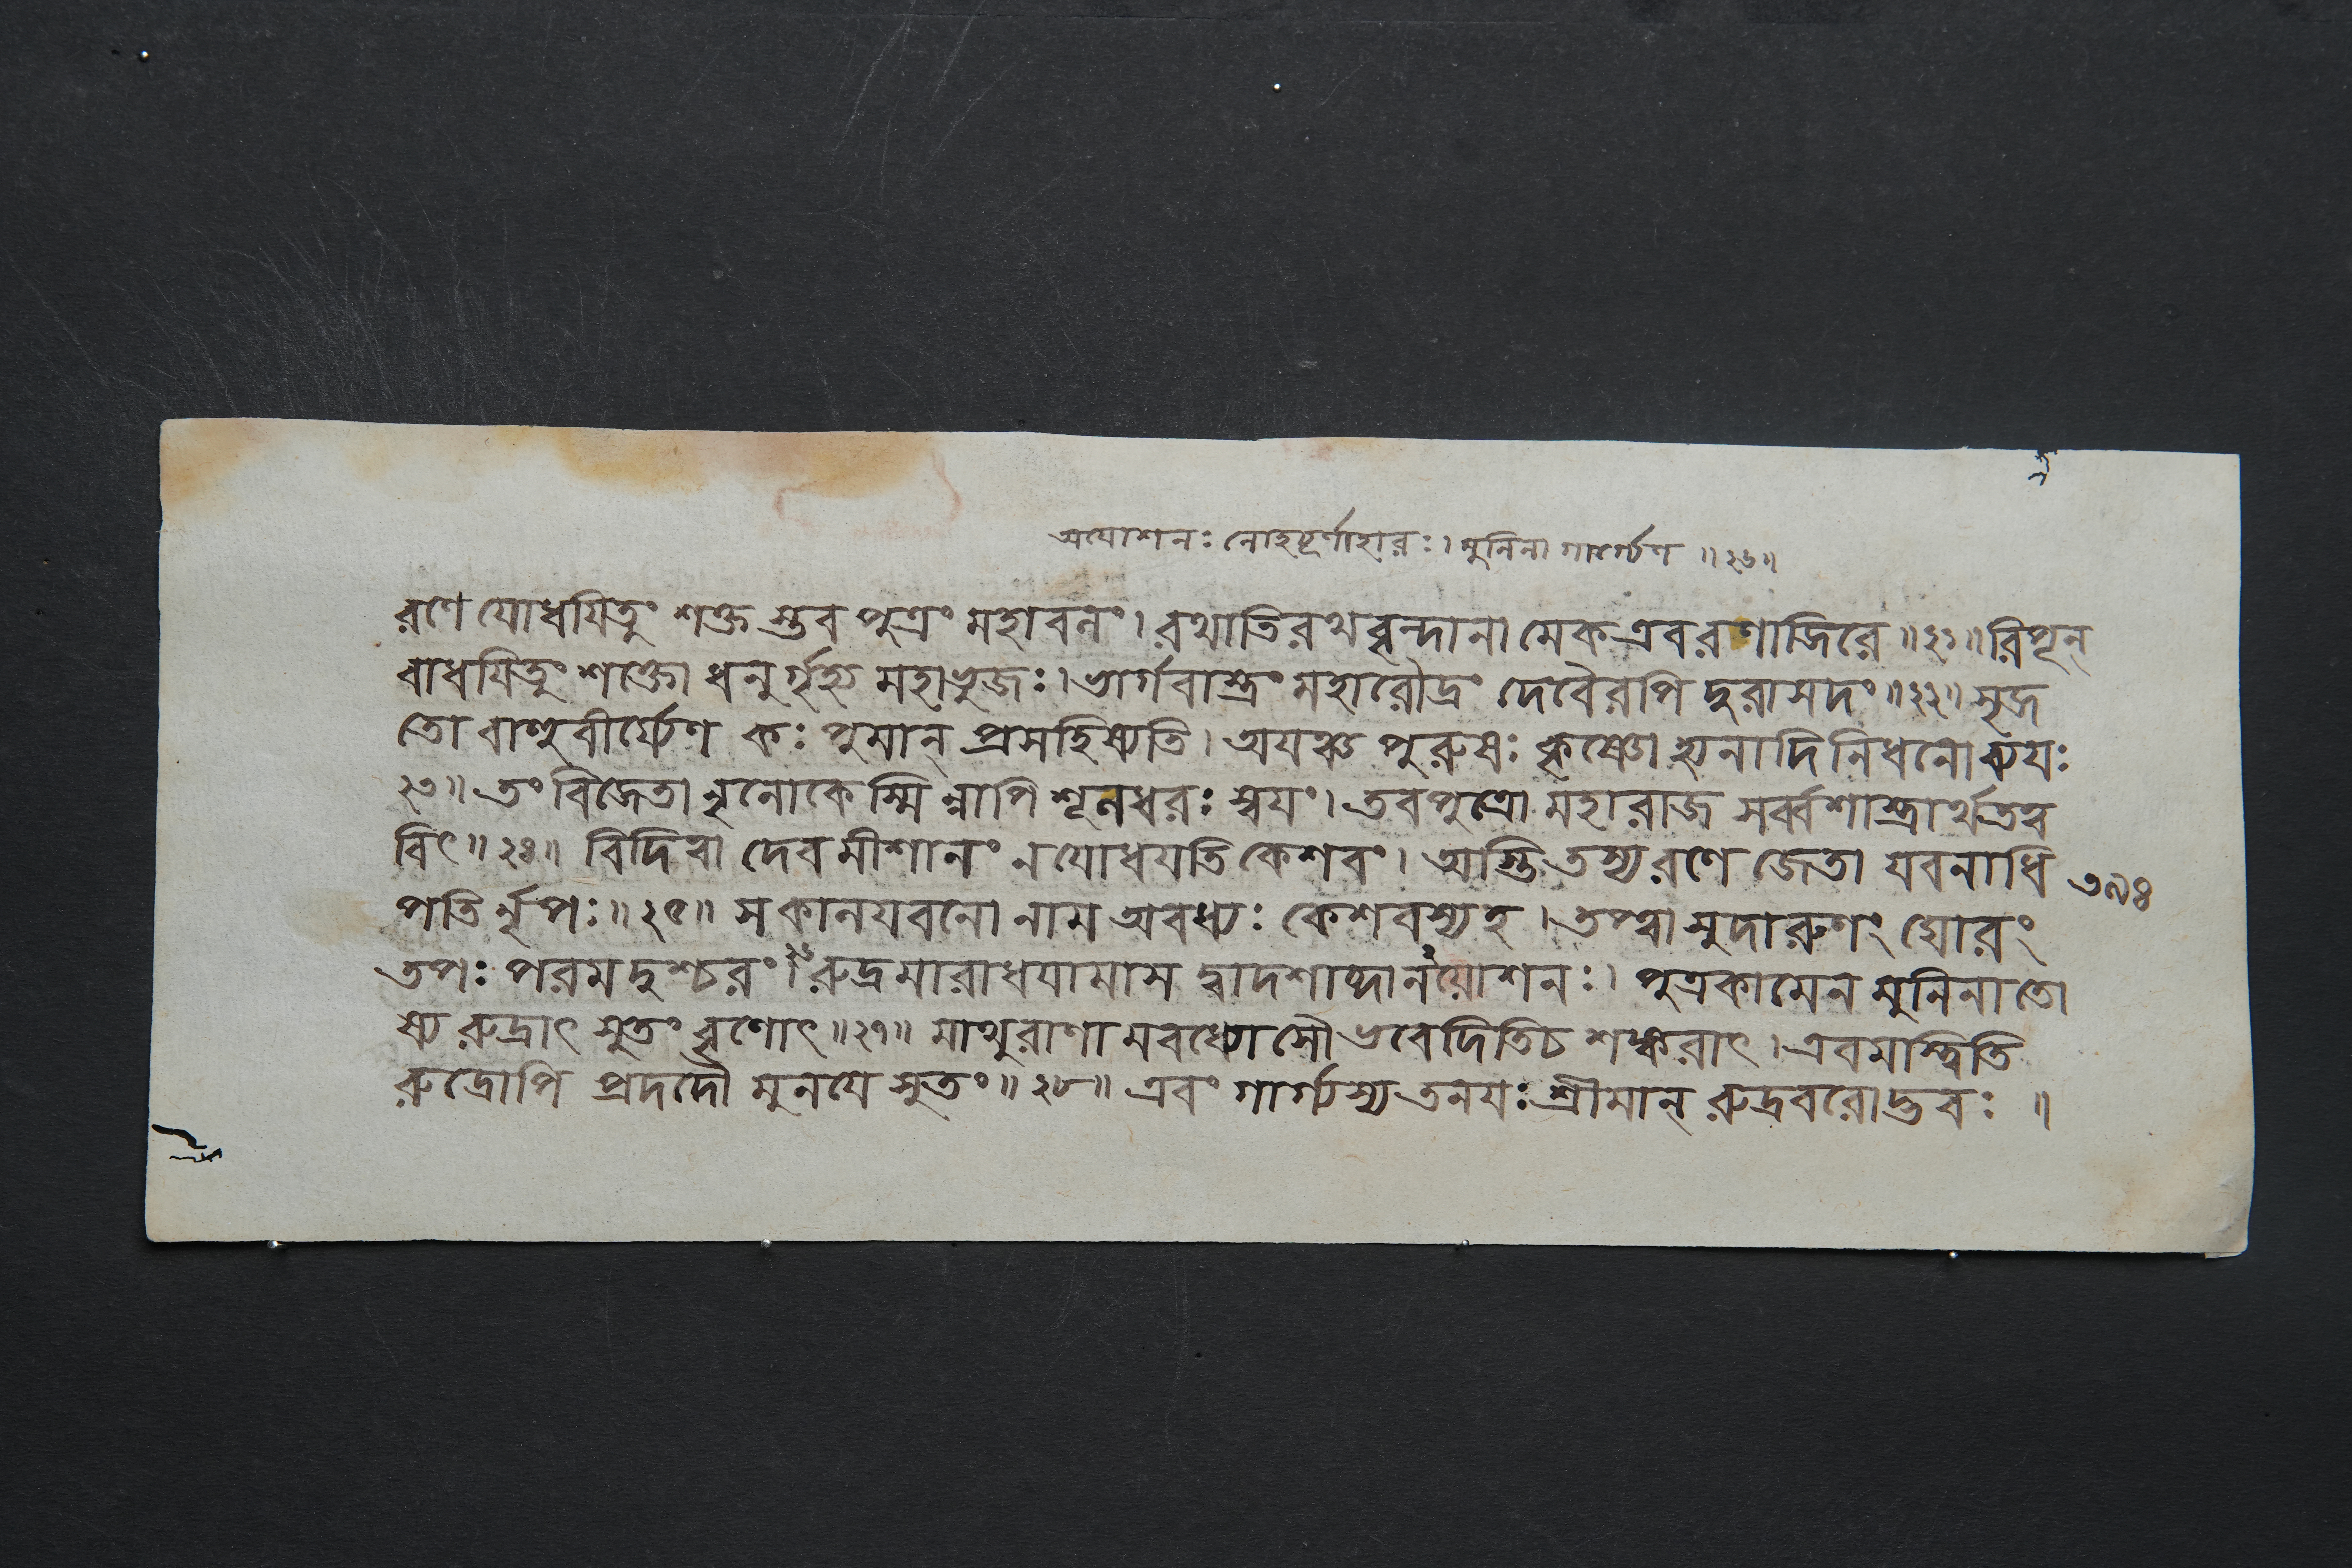 অযোশনঃ লোহচূর্ণাহারঃ। মুনিনা গার্গ্যেণ ॥২৬॥
রণে যোধযিতুং শক্ত স্তব পুত্রং মহাবলং। রথাতিরথবৃন্দানা মেক এব রণাজিরে ॥২১॥ রিপূন্
বাধযিতুং শক্তো ধনুর্গৃহ্য মহাভুজঃ। ভার্গবাস্ত্রং মহারৌদ্রং দেবৈরপি দুরাসদং ॥২২॥ সৃজ
তো বাহুবীর্য্যেণ কঃ পুমান্ প্রসহিষ্যতি। অযঞ্চ পুরুষঃ কৃষ্ণো হ্যনাদিনিধনো ব্যযঃ
২৩॥ তং বিজেতা নৃলোকেস্মি ন্নাপি শূলধরঃ স্বযং। তব পুত্রো মহারাজ সর্ব্বশাস্ত্রার্থতত্ব
বিৎ॥২৪॥ বিদিত্বা দেবমীশানং ন যোধযতি কেশবং। অস্তি তস্য রণে জেতা যবনাধি ৩৯৪
পতি র্নৃপঃ॥২৫॥ স কালযবনো নাম অবধ্যঃ কেশবস্য হ। তপ্ত্বা সুদারুণং ঘোরং
তপঃ পরমদুশ্চরং। রুদ্রমারাধযামাস দ্বাদশাব্দানযোশনঃ। পুত্রকামেন মুনিনা তো
ষ্য রুদ্রাৎ সুতং বৃণোৎ॥২৭॥ মাথুরাণা মবধ্যোসৌ ভবেদিতি চ শঙ্করাৎ। এবমস্ত্বিতি
রুদ্রোপি প্রদদৌ মুনযে সুতং॥২৮॥ এবং গার্গ্যস্য তনযঃ শ্রীমান্ রুদ্রবরোদ্ভবঃ ॥